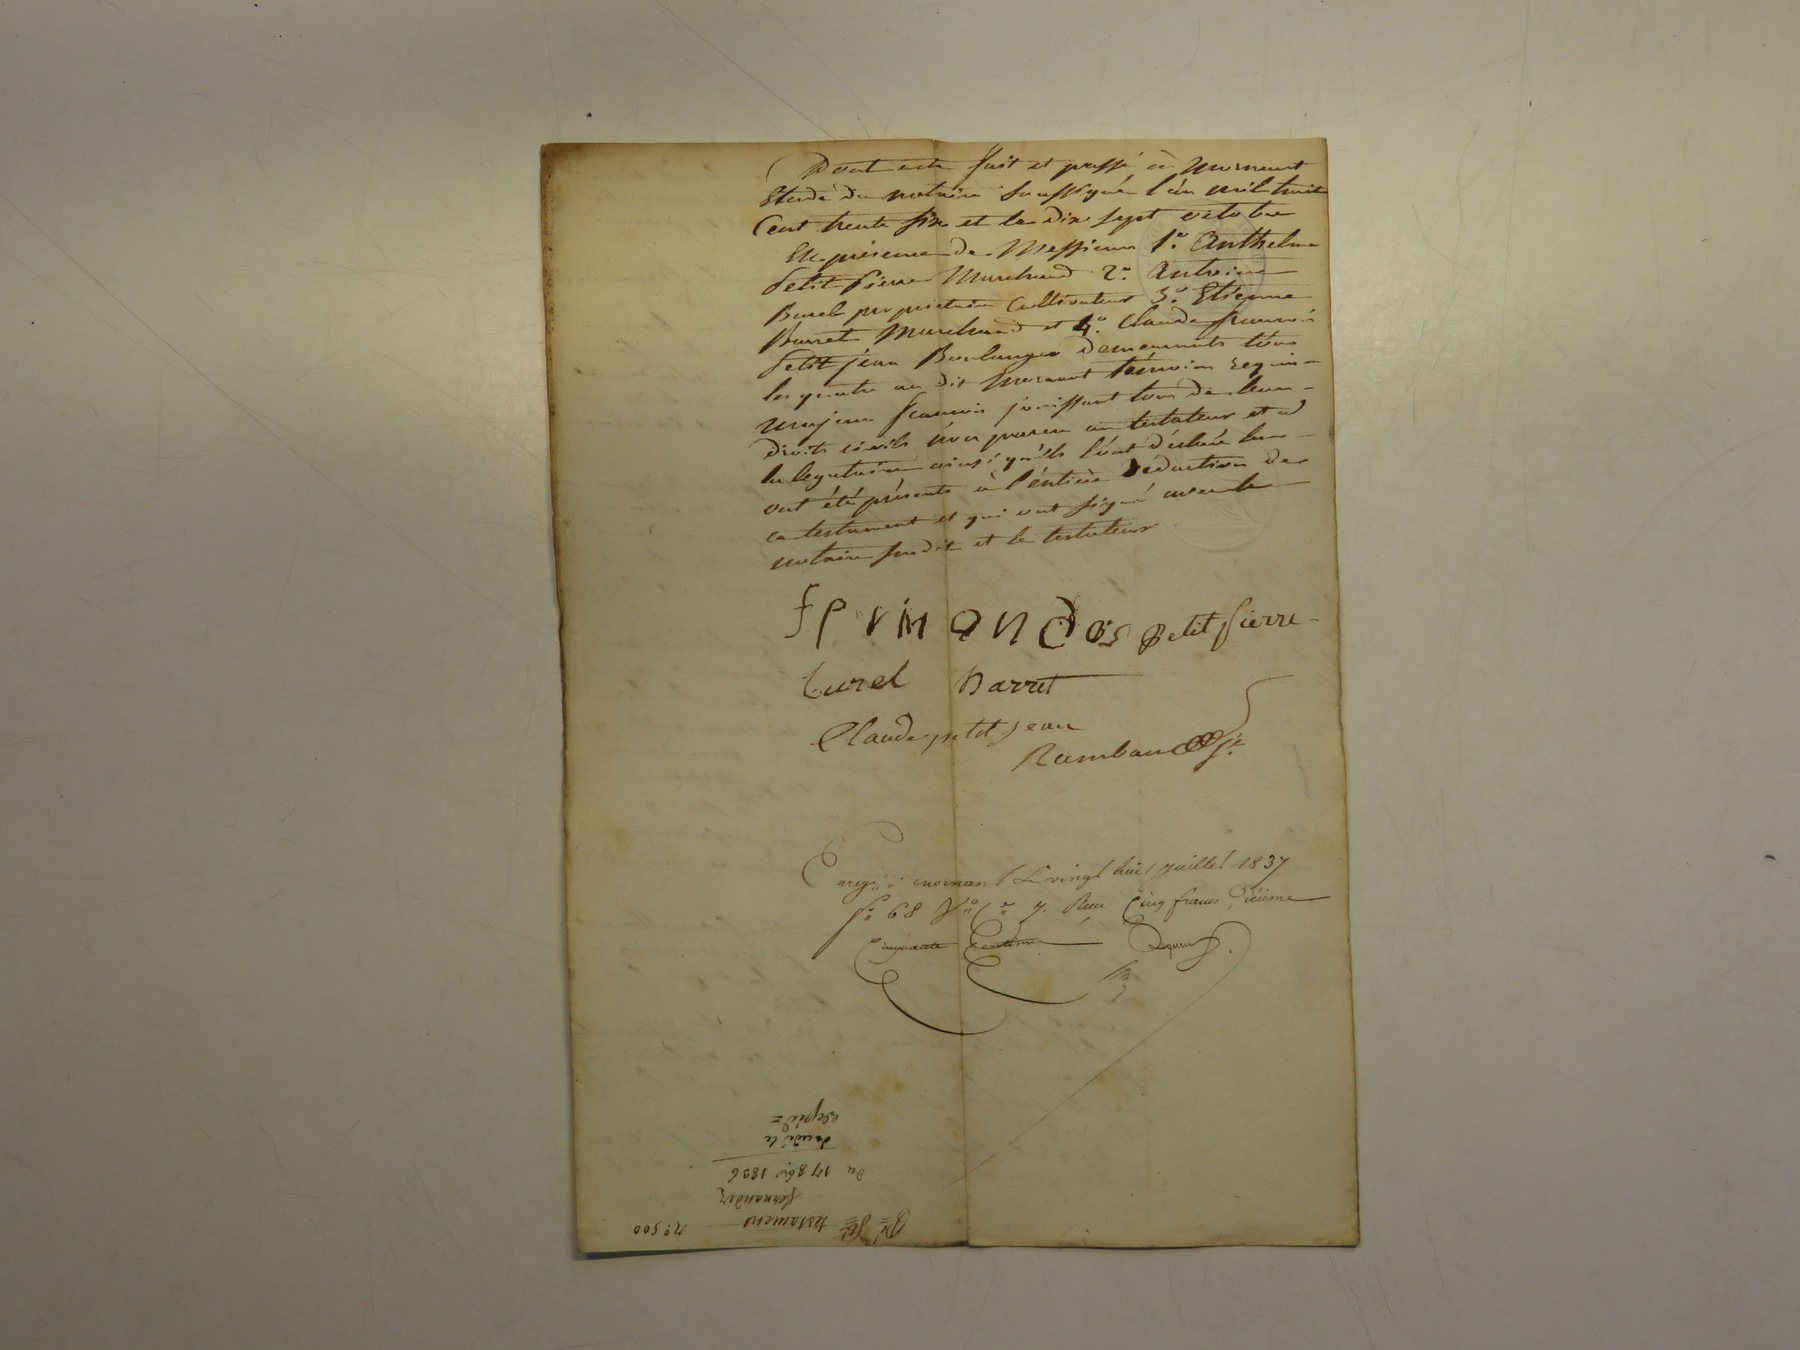 Dont acte fait et passé à Mornant
Etude du notaire soussigné l'an mil huit
Cent trente six et le dix sept octobre
En présence de Messieurs 1.º Anthelme
petit pierre Marchand 2.º Antoine
Burel propriétaire Cultivateur 3.º Etienne
Barret Marchand et 4.º Claude francois
petit jean Boulanger demeurants tous
les quatre au dit Mornant témoins requis
majeurs francais jouissant tous de leurs
droits civils non parens au testateur et a
la légataire ainsi qu'ils l'ont déclaré les
ont été présents à l'entière redaction de
ce testament et qui ont signé avec le
notaire susdit et le testateur
petit pierre
burel Barret
Claude petit jean
Rambaud
Enreg. à mornant le vingt huit juillet 1837
fº 68 Vº Cº 7. Reçu Cinq francs Décime
Cinquante Centimes
Nº 500
testament
fernandez
du 17 8bre 1836
expéd=